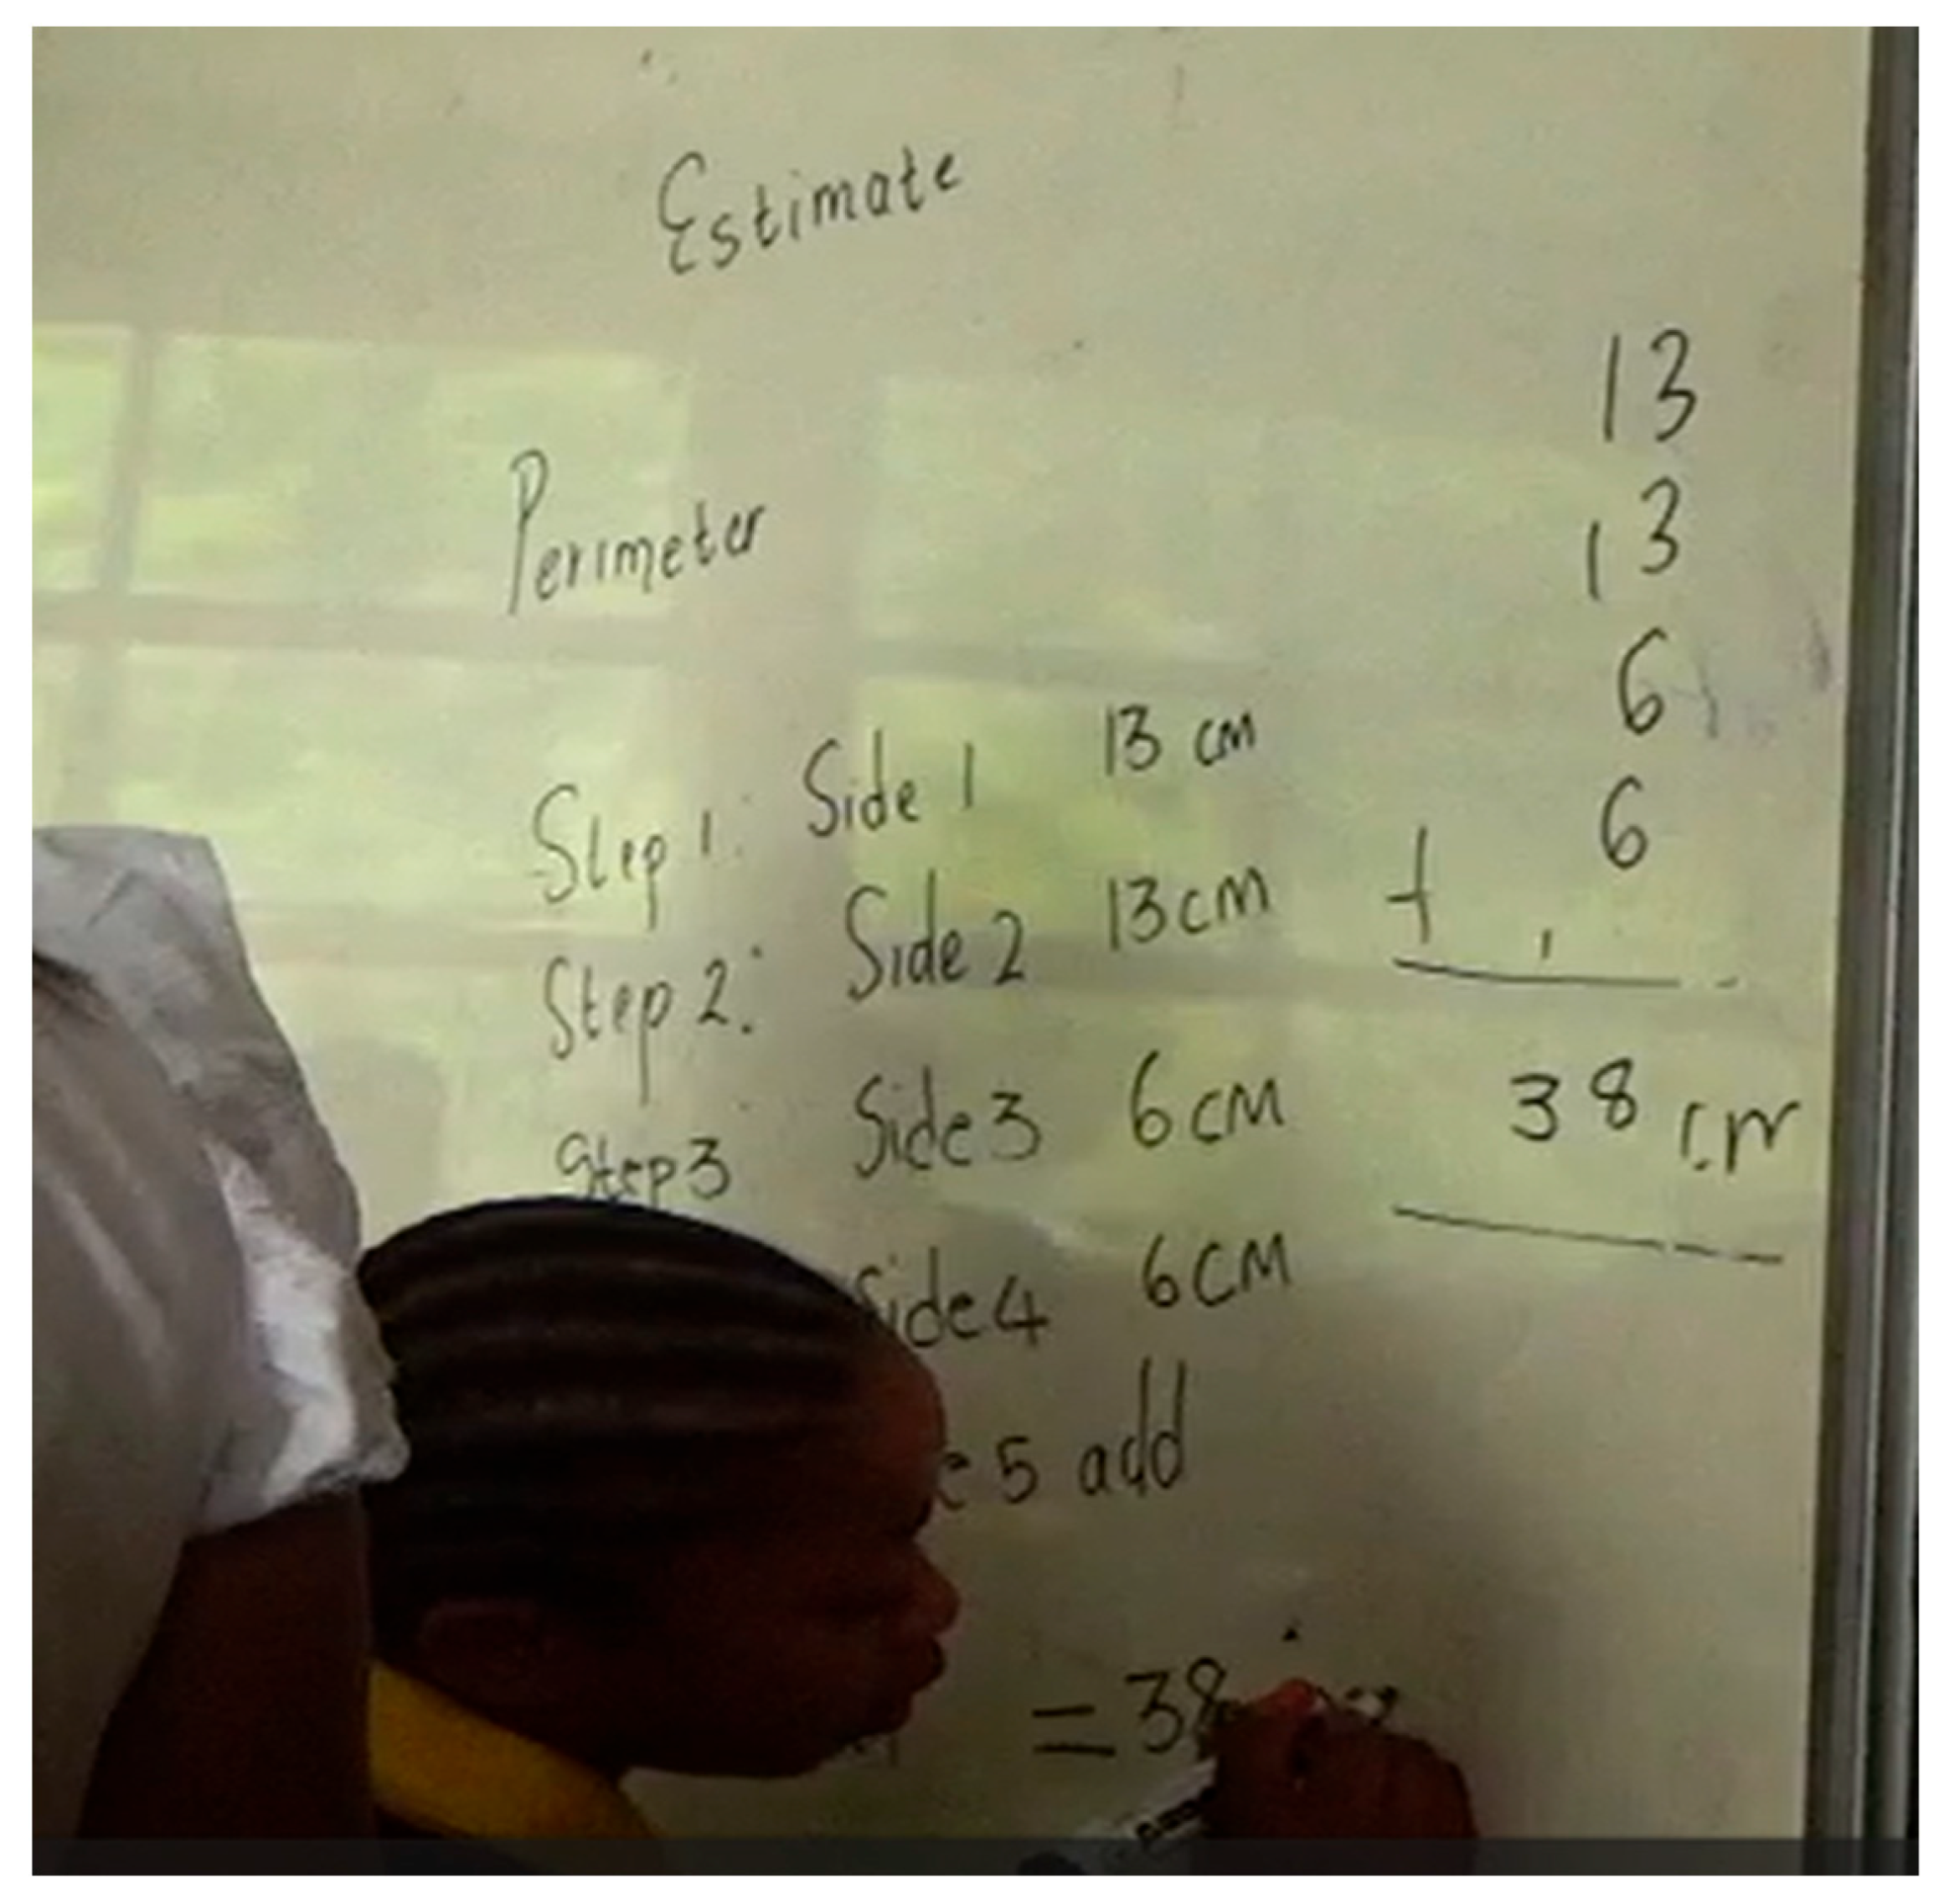 Estimate
Perimeter
Step 1: Side 1 13 cm
Step 2: Side 2 13 cm
Step 3 Side 3 6 cm
Side 4 6 cm
5 add
= 38
13
13
6
+ 6
1
38 cm